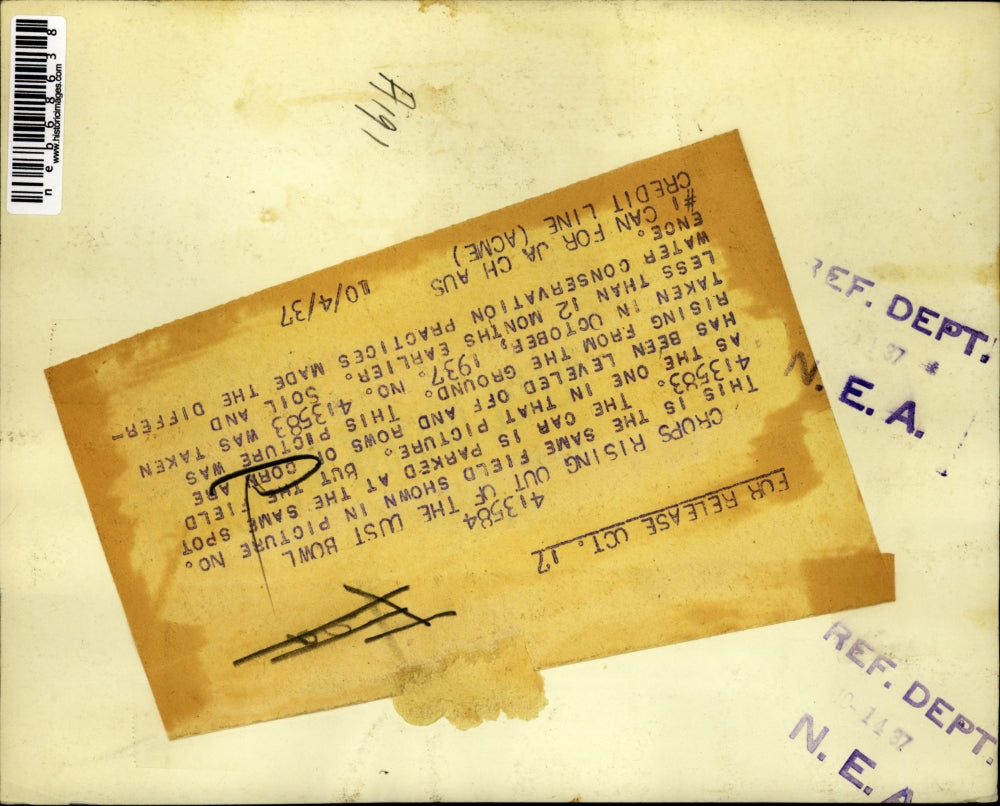 neb68638
www.historicimages.com
A191
FOR RELEASE OCT. 17
413584
CROPS RISING OUT OF THE DUST BOWL
THIS IS THE SAME FIELD SHOWN IN PICTURE NO.
413583. THE CAR IS PARKED AT THE SAME SPOT
AS THE ONE IN THAT PICTURE. BUT THE FIELD
HAS BEEN LEVELED OFF AND ROWS OF CORN ARE
RISING FROM THE GROUND. THIS PICTURE WAS
TAKEN IN OCTOBER, 1937. NO. 413583 WAS TAKEN
LESS THAN 12 MONTHS EARLIER. SOIL AND
WATER CONSERVATION PRACTICES MADE THE DIFFER-
ENCE.
#1 CAN FOR JA CH AUS 10/4/37
CREDIT LINE (ACME)
REF. DEPT.
N. E. A.
REF. DEPT.
10-14 37
N. E. A